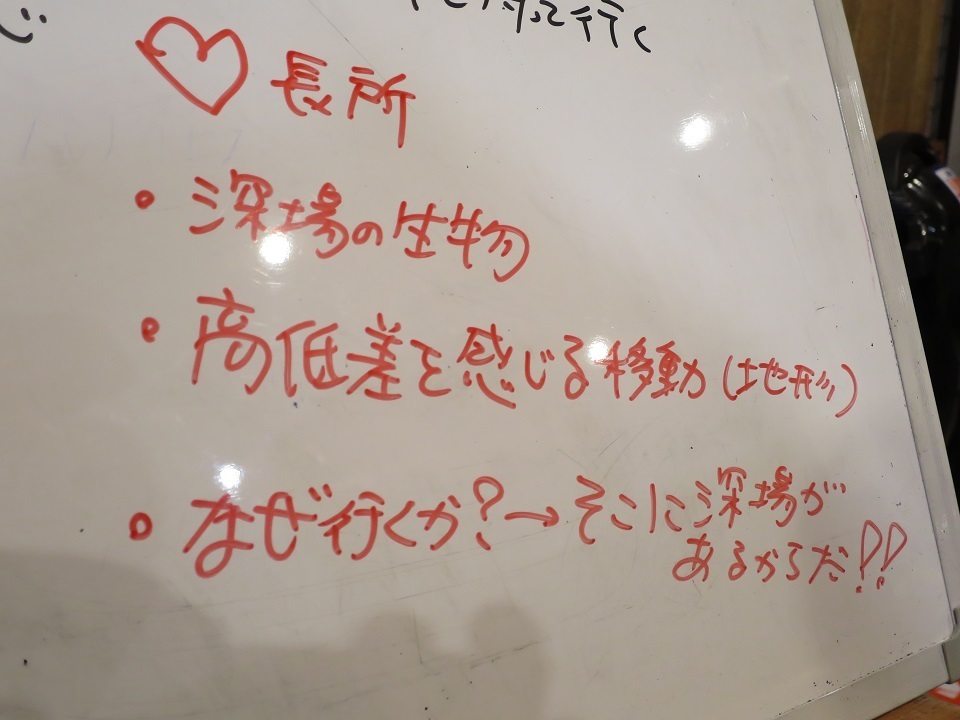 行く
♡ 長所
・深場の生物
・高低差を感じる移動(地形)
・なぜ行くか?→そこに深場が
あるからだ!!